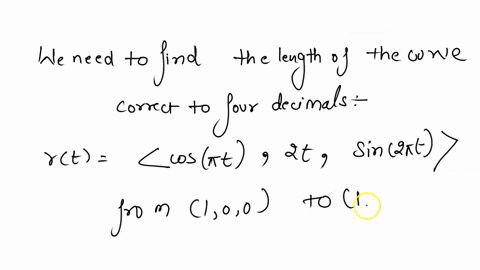 We need to find the length of the curve
correct to four decimals:-
r(t) = <cos(πt), 2t, sin(2πt)>
from (1,0,0) to (1.